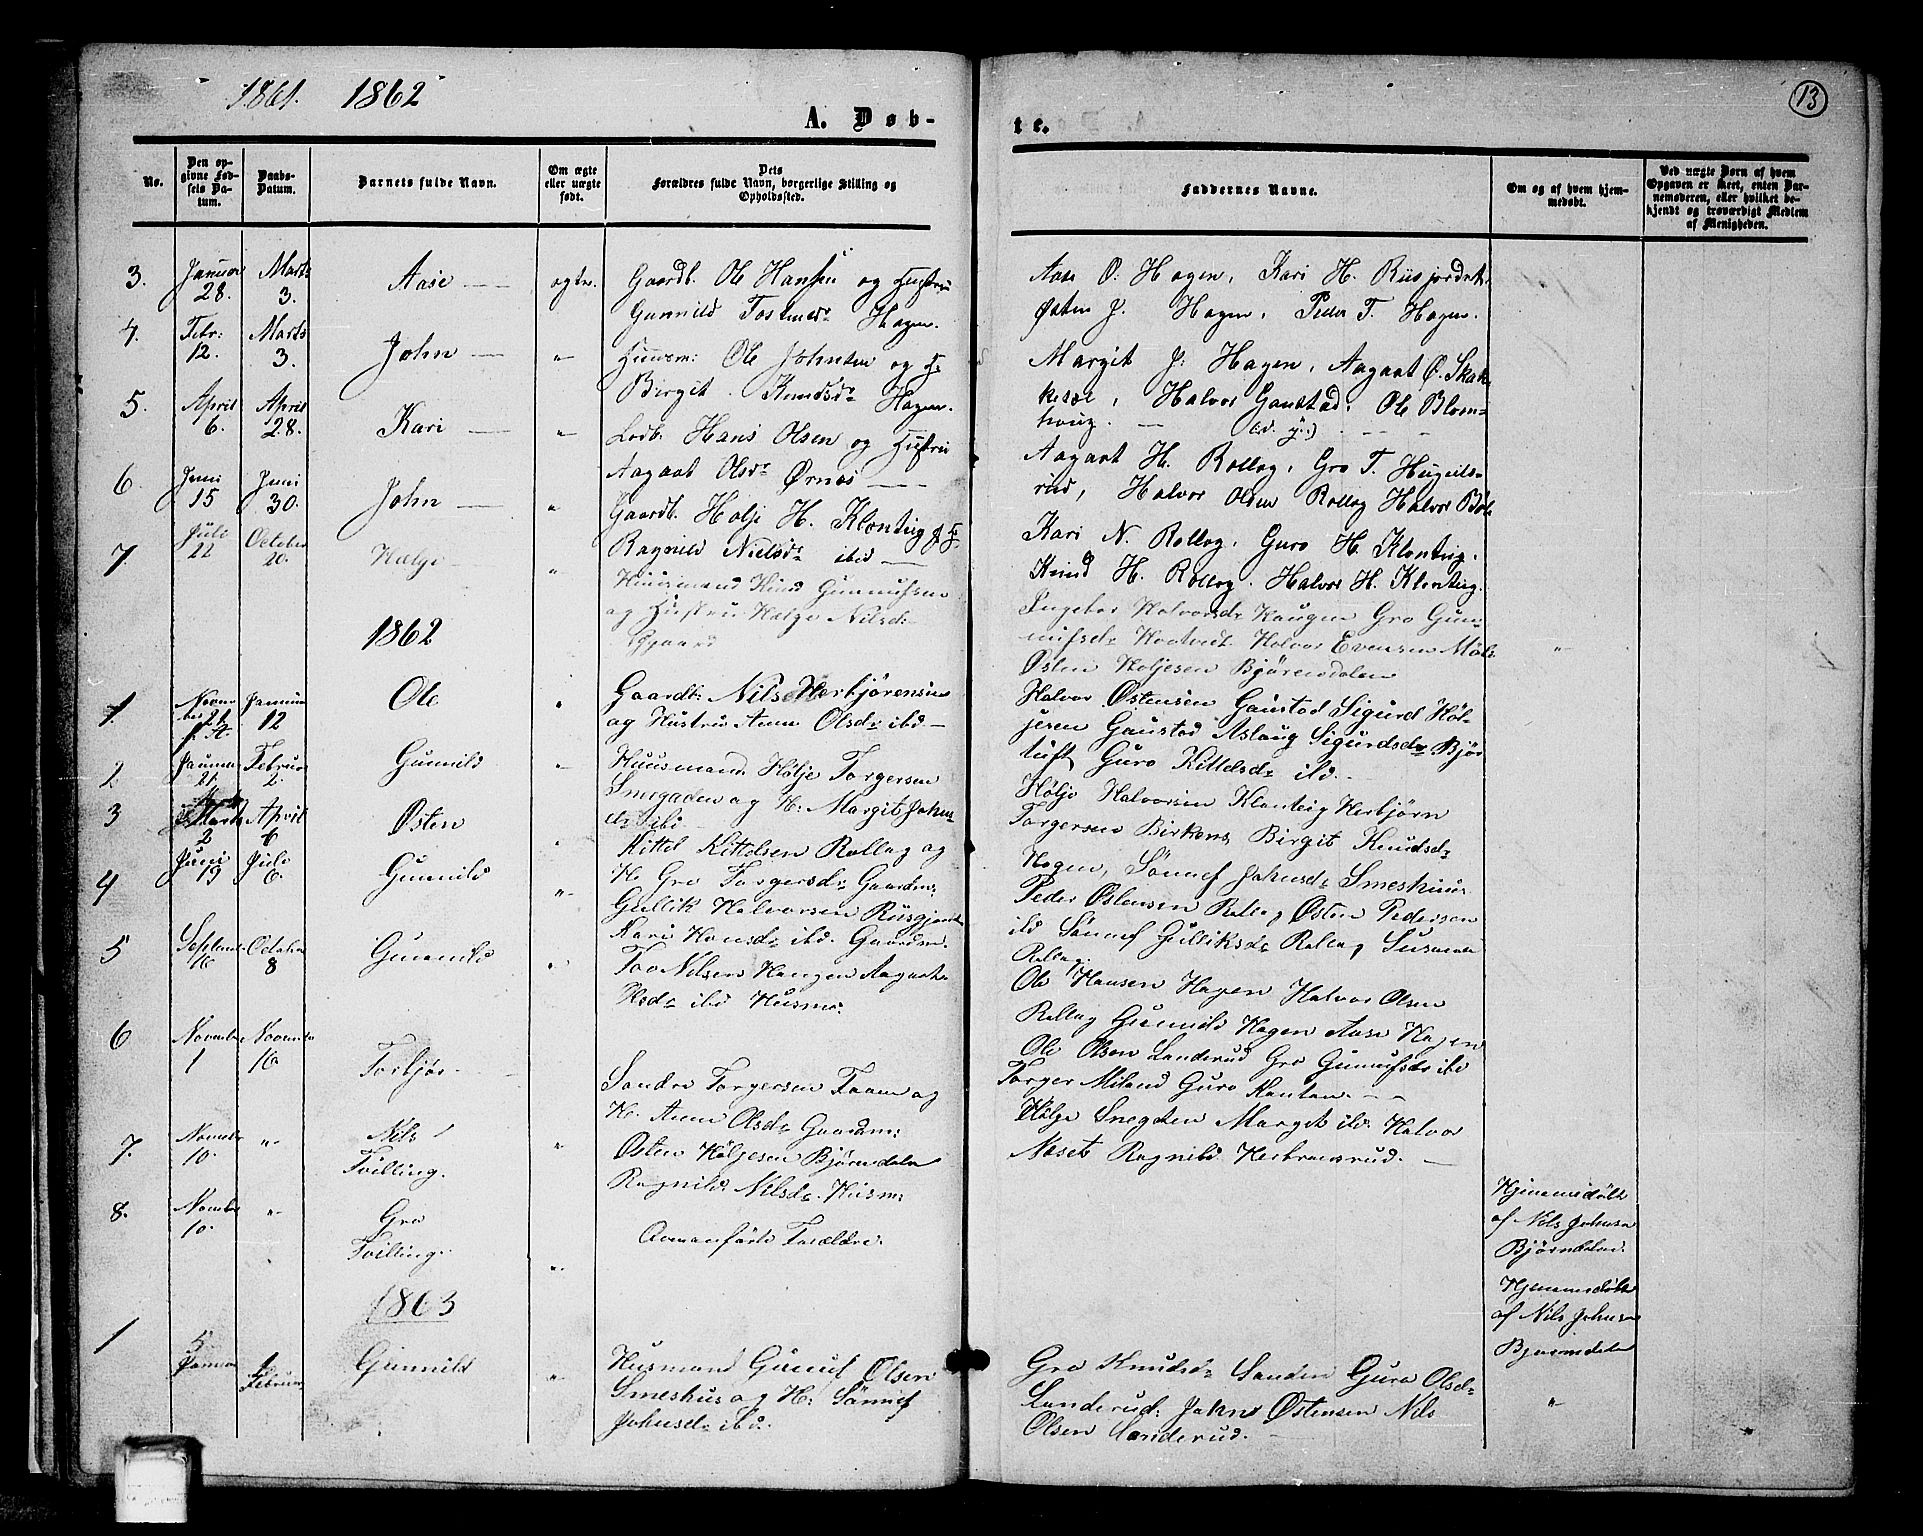 1861. 1862
13
A. Døb-
te.
No.
Den op-
givne Fød-
sels Da-
tum.
Daabs-
Datum.
Barnets fulde Navn.
Om ægte
eller uægte
født.
Dets
Forældres fulde Navn, borgerlige Stilling og
Opholdssted.
Faddernes Navne.
Om og af hvem hjem-
medøbt.
Ved uægte Børn af hvem
Opgaven er skeet, enten Bar-
nemoderen, eller hvilket be-
kjendt og troværdigt Medlem
af Menigheden.
3.
Januar
28.
Marts
3.
Aase
ægte.
Gaardb. Ole Hansen og Hustru
Gunnild Tostensdr Hagen.
Aase O. Hagen, Kari H. Riisjordet
Østen J. Hagen, Peder T. Hagen.
4.
Febr:
12.
Marts
3.
John
"
Huusm: Ole Johnsen og H.
Birgit Knudsdr Hagen.
Margit J: Hagen, Aagaat O. Skak-
kesæt, Halvor Gaustad, Ole Blom-
houg.
5.
April
6.
April
28.
Kari
"
Lodb. Hans Olsen og Hustru
Aagaat Olsdr Ørnæs
Aagaat H. Rollag, Gro T. Huguls-
rud, Halvor Olsen Rollag Halvor
6.
Juni
15
Juni
30.
John
"
Gaardb. Holje H. Klonteig og H.
Ragnild Nielsdr ibd
Kari N. Rollag, Guro H. Klonteig.
Knud H. Rollag. Halvor H. Klonteig.
7.
Juli
22
October
20.
Hælge
"
Huusmand Knud Gunnufsen
og Hustru Hælge Nilsdr
Ingebor Halvorsdr Haugen Gro Gun-
nufsdr Hovtvedt Halvor Evensen
Østen Holjesen Bjørnsdalen
"
1862
1.
Novem-
ber 21
f. A.
Januar
12
Ole
"
Gaardb: Nils Herbjørensen
og Hustru Anne Olsdr ibd
Halvor Østensen Gaustad Sigurd Höl-
jesen Gaustad Aslaug Sigurdsdr Bjør
tuft Guro Kittelsdr ibd.
2
Januar
21.
Februar
2.
Gunnild
"
Huusmand Hölje Torgersen
Smegaden og H: Margit Johns-
dr ibd
Hölje Halvorsen Klonteig Herbjørn
Torgersen Birkenes Birgit Knudsdr
Hagen, Sönnef Johnsdr Smeshuus
3
Marts
2
April
6
Østen
"
Kittel Kittelsen Rollag og
H. Gro Torgersdr Gaardm:
Peder Østensen Rollag Østen Pedersen
ibd Sönnef Gulliksdr Rollag Susanne
Rollag.
4
Juni
19
Juli
6.
Gunnild
"
Gullik Halvorsen Riisgjordet
Kari Hansdr ibd. Gaardm.
Ole Hansen Hagen Halvor Olsen
Rollag Gunnild Hagen Aase Hagen
5
Septemb
16
October
8
Gunnild
"
Tov Nilsen Haugen Aagaat
dr ibd Husm:
Ole Olsen Landerud Gro Gunnufsdr ibd
Torger Miland Guro
6
November
1
November
16
Torbjør
Sondre Torgersen Traaen og
H. Anne Olsdr Gaardm:
Hölge Smegden Margit ibd Halvor
Næset Ragnild Herbrandsrud.
7.
Novemb
10.
"
Nils
Tvilling.
"
Østen Höljesen Bjørndalen
Ragnild Nilsdr. Husm:
Hjemmedöbt
af Nils Johnsen
Bjørndalen.
8.
November
10.
"
Gro
Tvilling.
"
Ovenanførte Forældre.
Hjemmedöbt
af Nils Johnsen
Bjørndalen
1863
1
5
Januar
1
Februar
Gunnild
"
Husmand Gunuf Olsen
Smeshus og H: Sönnef
Johnsdr ibd.
Gro Knudsdr Sanden Guro Olsdr
Landerud: John Østensen Nils
Olsen Landerud.
"